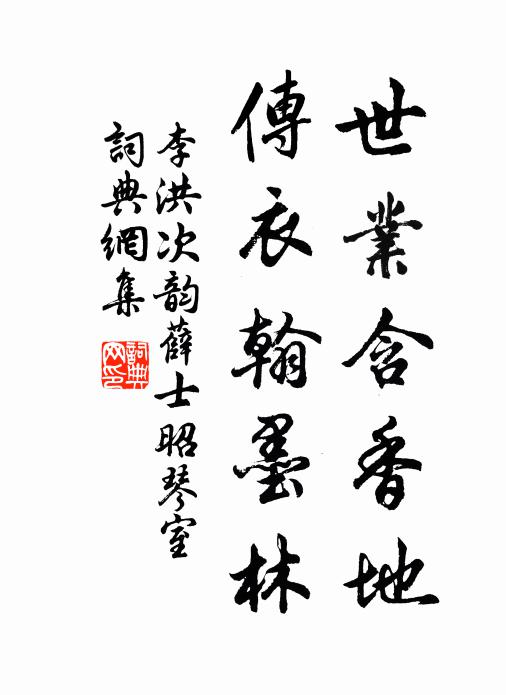 世業含香地
傳衣翰墨林
李洪次韵薛士昭琴室
詞典網集
詞典
网印